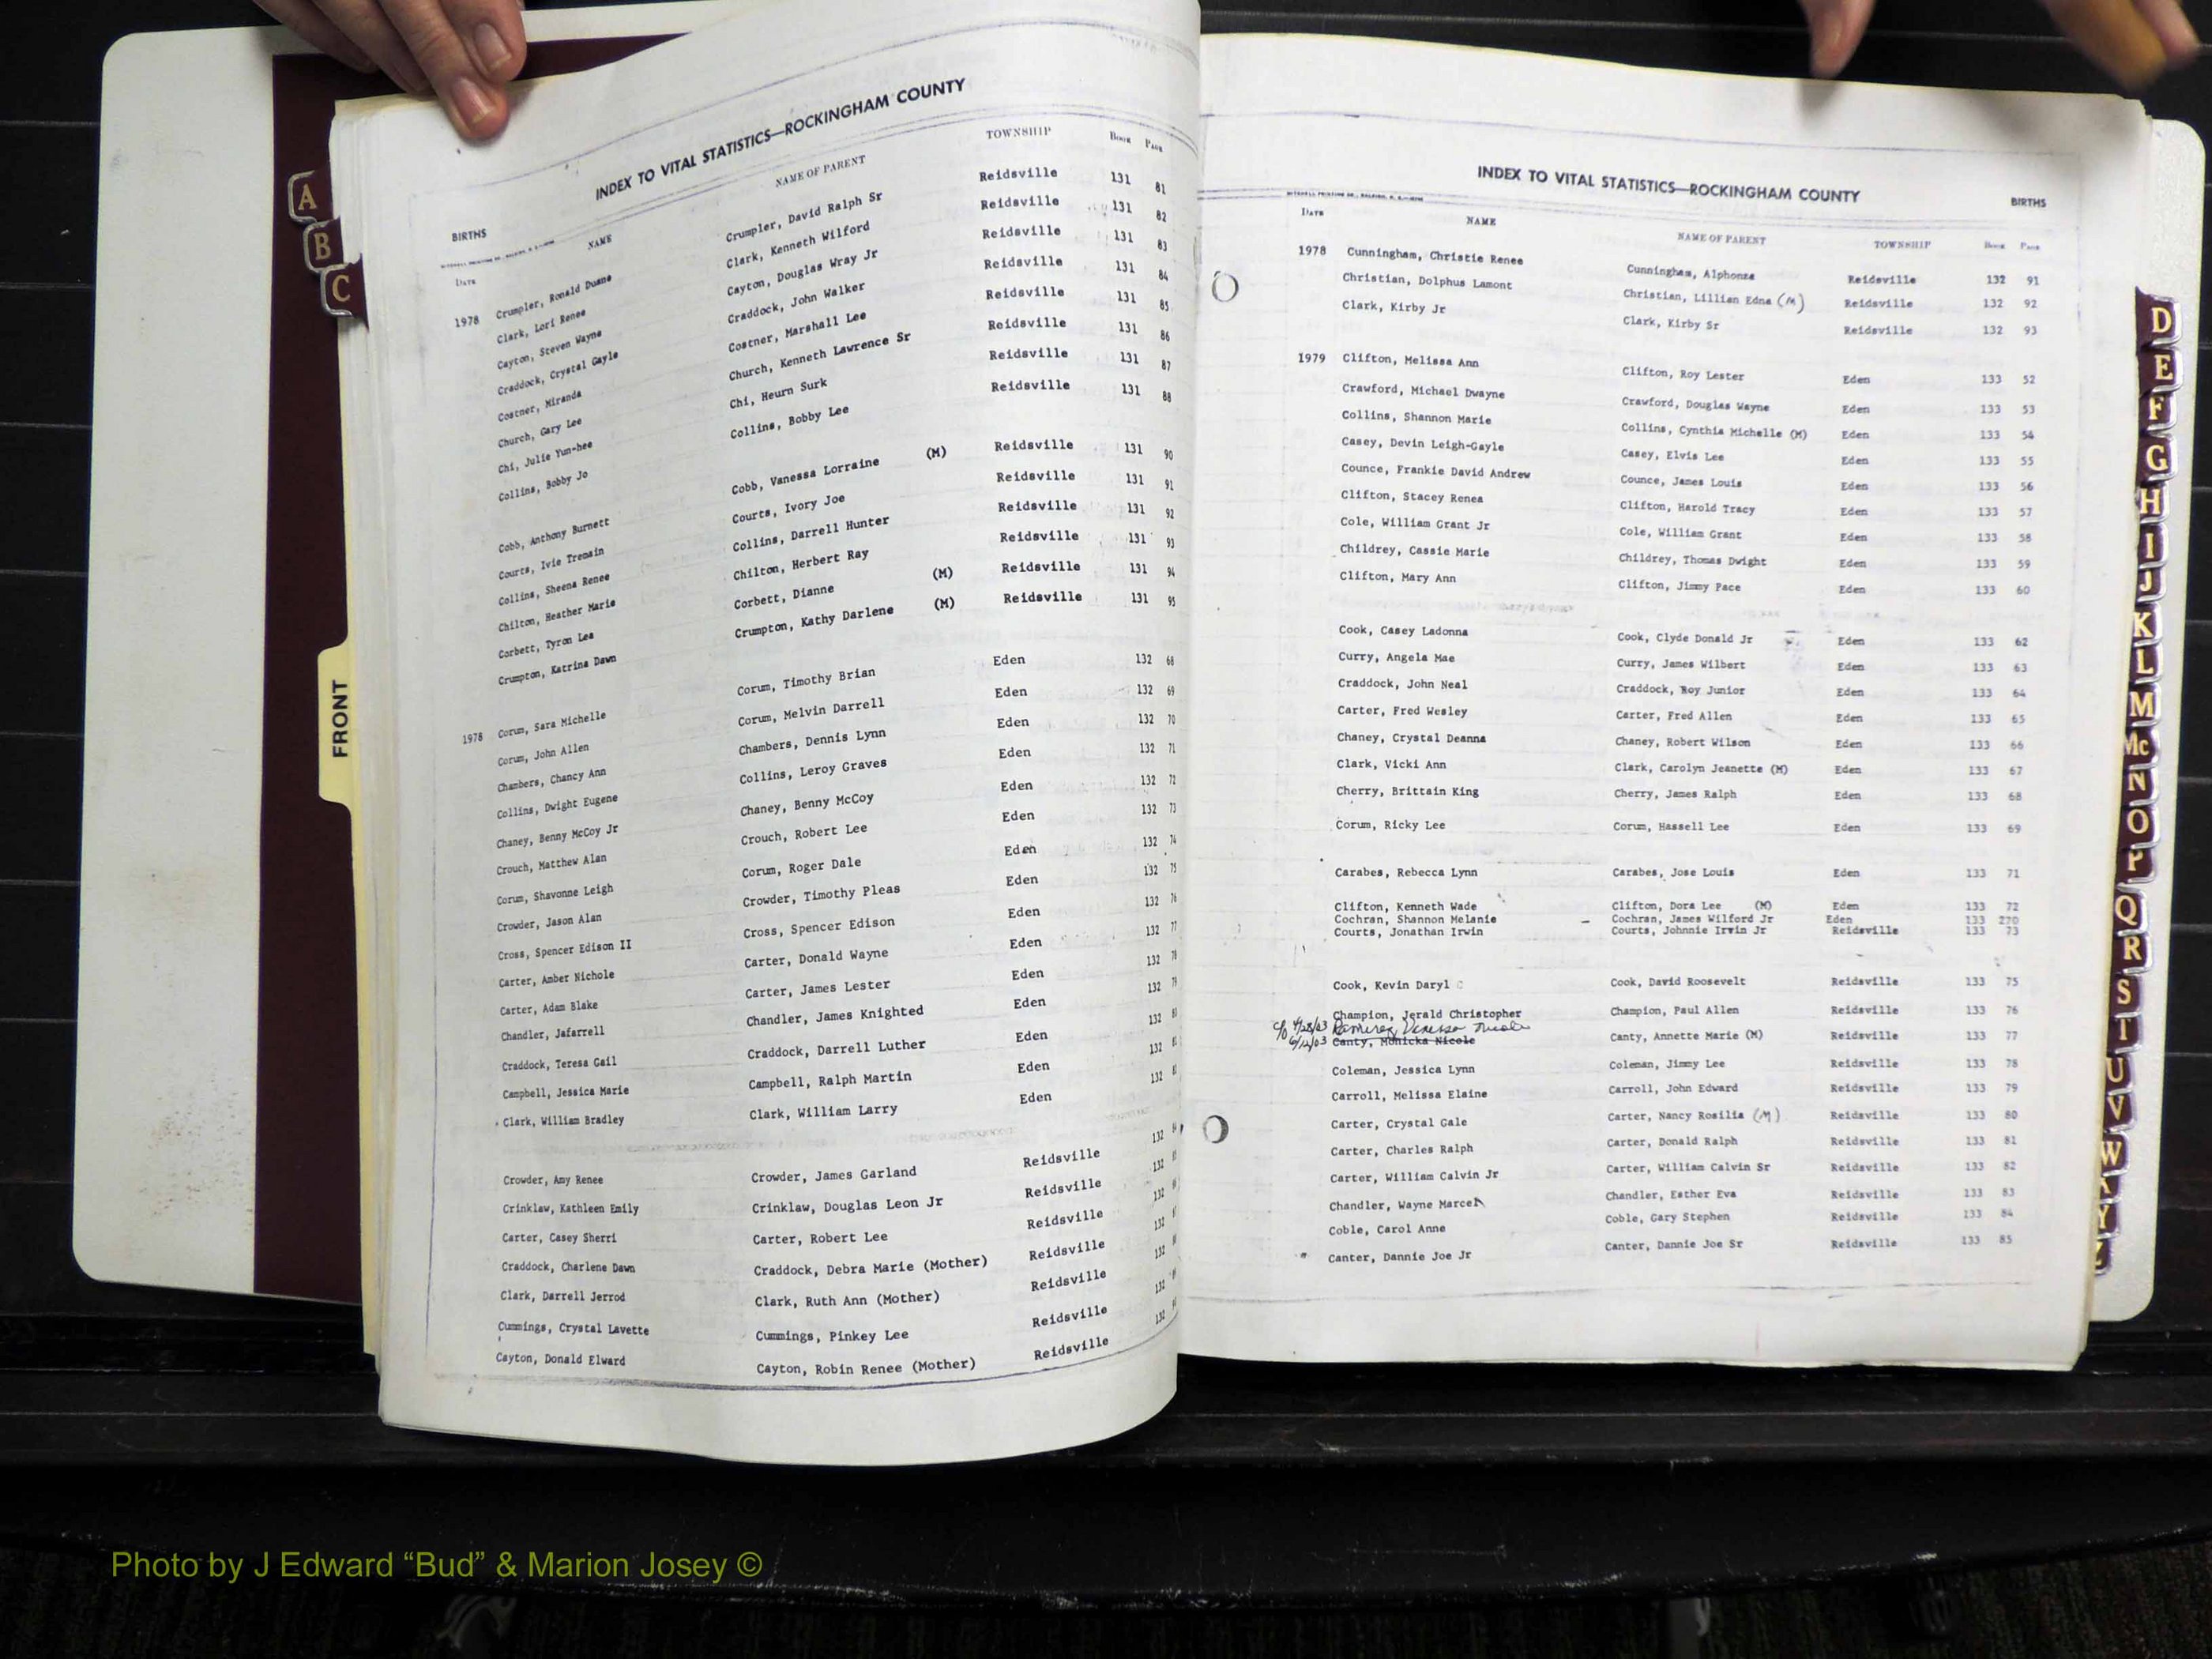 INDEX TO VITAL STATISTICS—ROCKINGHAM COUNTY
BIRTHS
DATE NAME NAME OF PARENT TOWNSHIP BOOK PAGE
1978 Crumpler, Ronald Duane Crumpler, David Ralph Sr Reidsville 131 81
Clark, Lori Renee Clark, Kenneth Wilford Reidsville 131 82
Cayton, Steven Wayne Cayton, Douglas Wray Jr Reidsville 131 83
Craddock, Crystal Gayle Craddock, John Walker Reidsville 131 84
Costner, Miranda Costner, Marshall Lee Reidsville 131 85
Church, Gary Lee Church, Kenneth Lawrence Sr Reidsville 131 86
Chi, Julie Yun-hee Chi, Heurn Surk Reidsville 131 87
Collins, Bobby Jo Collins, Bobby Lee Reidsville 131 88
Cobb, Anthony Burnett Cobb, Vanessa Lorraine (M) Reidsville 131 90
Courts, Ivie Tremain Courts, Ivory Joe Reidsville 131 91
Collins, Sheena Renee Collins, Darrell Hunter Reidsville 131 92
Chilton, Heather Marie Chilton, Herbert Ray Reidsville 131 93
Corbett, Tyron Lea Corbett, Dianne (M) Reidsville 131 94
Crumpton, Katrina Dawn Crumpton, Kathy Darlene (M) Reidsville 131 95
1978 Corum, Sara Michelle Corum, Timothy Brian Eden 132 68
Corum, John Allen Corum, Melvin Darrell Eden 132 69
Chambers, Chancy Ann Chambers, Dennis Lynn Eden 132 70
Collins, Dwight Eugene Collins, Leroy Graves Eden 132 71
Chaney, Benny McCoy Jr Chaney, Benny McCoy Eden 132 72
Crouch, Matthew Alan Crouch, Robert Lee Eden 132 73
Corum, Shavonne Leigh Corum, Roger Dale Eden 132 74
Crowder, Jason Alan Crowder, Timothy Pleas Eden 132 75
Cross, Spencer Edison II Cross, Spencer Edison Eden 132 76
Carter, Amber Nichole Carter, Donald Wayne Eden 132 77
Carter, Adam Blake Carter, James Lester Eden 132
Chandler, Jafarrell Chandler, James Knighted Eden 132
Craddock, Teresa Gail Craddock, Darrell Luther Eden 132
Campbell, Jessica Marie Campbell, Ralph Martin Eden 132
Clark, William Bradley Clark, William Larry Eden 132
Crowder, Amy Renee Crowder, James Garland Reidsville 132
Crinklaw, Kathleen Emily Crinklaw, Douglas Leon Jr Reidsville 132
Carter, Casey Sherri Carter, Robert Lee Reidsville 132
Craddock, Charlene Dawn Craddock, Debra Marie (Mother) Reidsville 132
Clark, Darrell Jerrod Clark, Ruth Ann (Mother) Reidsville 132
Cummings, Crystal Lavette Cummings, Pinkey Lee Reidsville 132
Cayton, Donald Elward Cayton, Robin Renee (Mother) Reidsville 132
A
B
C
FRONT
INDEX TO VITAL STATISTICS—ROCKINGHAM COUNTY
BIRTHS
DATE NAME NAME OF PARENT TOWNSHIP BOOK PAGE
1978 Cunningham, Christie Renee Cunningham, Alphonza Reidsville 132 91
Christian, Dolphus Lamont Christian, Lillian Edna (M) Reidsville 132 92
Clark, Kirby Jr Clark, Kirby Sr Reidsville 132 93
1979 Clifton, Melissa Ann Clifton, Roy Lester Eden 133 52
Crawford, Michael Dwayne Crawford, Douglas Wayne Eden 133 53
Collins, Shannon Marie Collins, Cynthia Michelle (M) Eden 133 54
Casey, Devin Leigh-Gayle Casey, Elvis Lee Eden 133 55
Counce, Frankie David Andrew Counce, James Louis Eden 133 56
Clifton, Stacey Renea Clifton, Harold Tracy Eden 133 57
Cole, William Grant Jr Cole, William Grant Eden 133 58
Childrey, Cassie Marie Childrey, Thomas Dwight Eden 133 59
Clifton, Mary Ann Clifton, Jimmy Pace Eden 133 60
Cook, Casey Ladonna Cook, Clyde Donald Jr Eden 133 62
Curry, Angela Mae Curry, James Wilbert Eden 133 63
Craddock, John Neal Craddock, Roy Junior Eden 133 64
Carter, Fred Wesley Carter, Fred Allen Eden 133 65
Chaney, Crystal Deanna Chaney, Robert Wilson Eden 133 66
Clark, Vicki Ann Clark, Carolyn Jeanette (M) Eden 133 67
Cherry, Brittain King Cherry, James Ralph Eden 133 68
Corum, Ricky Lee Corum, Hassell Lee Eden 133 69
Carabes, Rebecca Lynn Carabes, Jose Louis Eden 133 71
Clifton, Kenneth Wade Clifton, Dora Lee (M) Eden 133 72
Cochran, Shannon Melanie – Cochran, James Wilford Jr Eden 133 270
Courts, Jonathan Irwin Courts, Johnnie Irwin Jr Reidsville 133 73
Cook, Kevin Daryl Cook, David Roosevelt Reidsville 133 75
Champion, Jerald Christopher Champion, Paul Allen Reidsville 133 76
c/o 4/28/03 Ramirez, Vanessa Nicole
6/12/03 Canty, Monicka Nicole Canty, Annette Marie (M) Reidsville 133 77
Coleman, Jessica Lynn Coleman, Jimmy Lee Reidsville 133 78
Carroll, Melissa Elaine Carroll, John Edward Reidsville 133 79
Carter, Crystal Gale Carter, Nancy Rosilia (M) Reidsville 133 80
Carter, Charles Ralph Carter, Donald Ralph Reidsville 133 81
Carter, William Calvin Jr Carter, William Calvin Sr Reidsville 133 82
Chandler, Wayne Marcel Chandler, Esther Eva Reidsville 133 83
Coble, Carol Anne Coble, Gary Stephen Reidsville 133 84
Canter, Dannie Joe Jr Canter, Dannie Joe Sr Reidsville 133 85
D
E
F
G
H
I
J
K
L
M
Mc
N
O
P
Q
R
S
T
U
V
W
Y
Z
Photo by J Edward “Bud” & Marion Josey ©